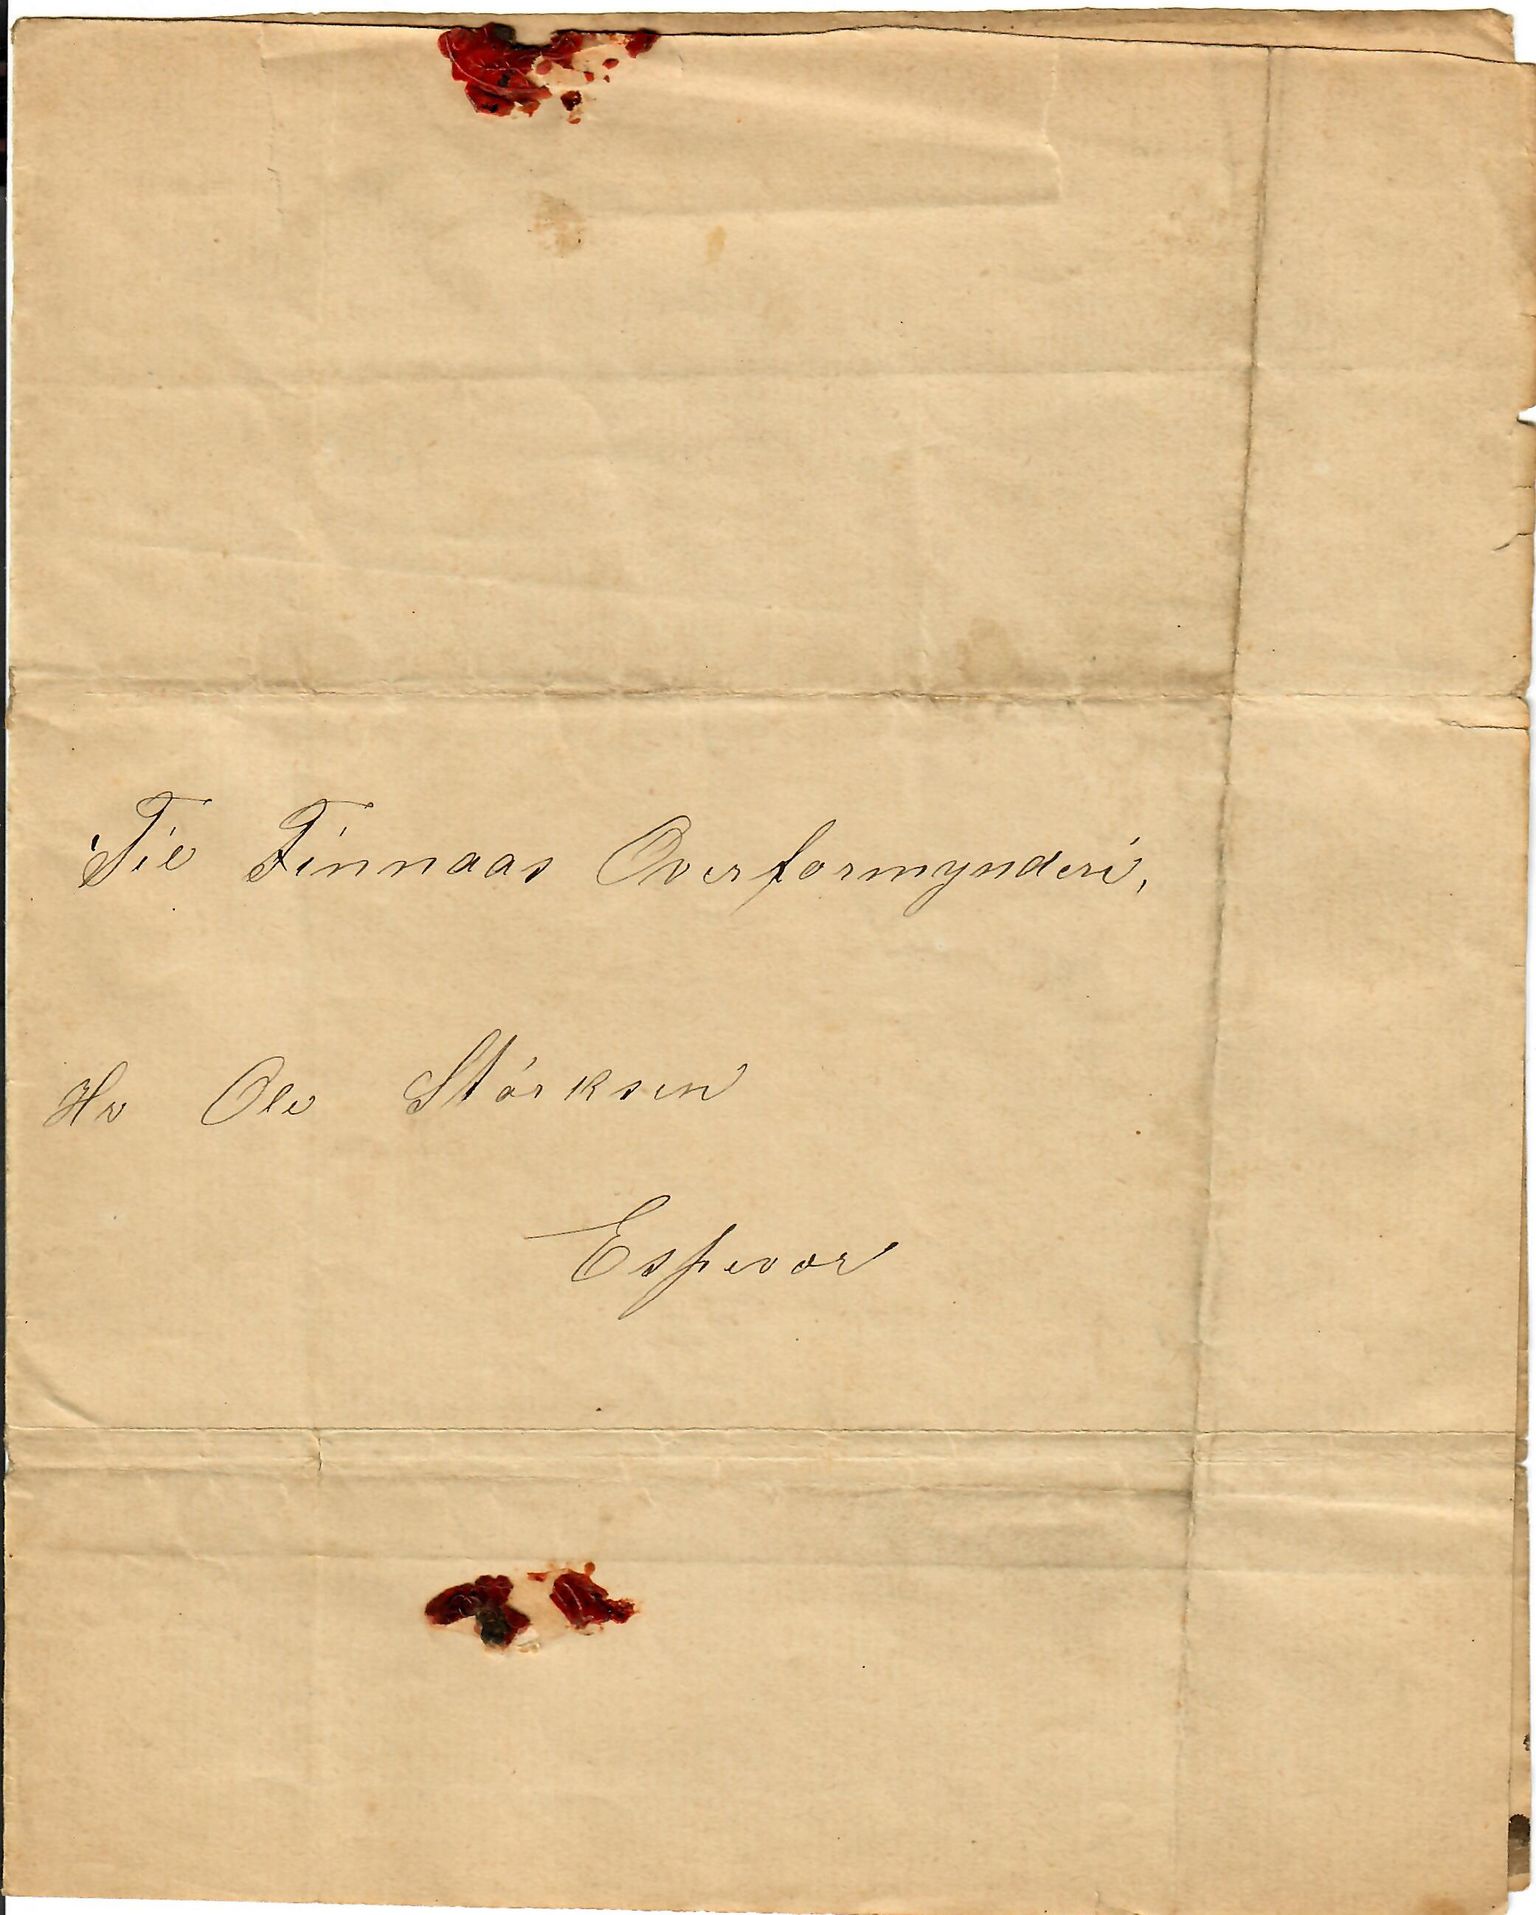 Til Finnaas Overformynderi,
Hr Ole Størksen
Espevær